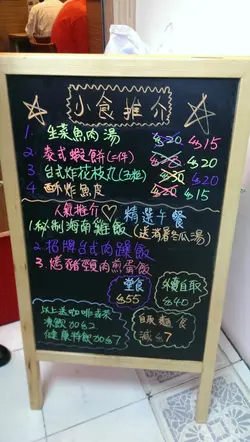 小食推介
1. 生菜魚肉湯 $20 $15
2. 泰式蝦餅(二件) $20
3. 台式炸花枝丸(五粒) $30 $20
4. 酥炸魚皮 $20 $15
人氣推介♡ 精選午餐
1. 秘制海南雞飯(送消暑冬瓜湯)
2. 招牌台式肉燥飯
3. 烤豬頸肉煎蛋飯
堂食
$55
外賣自取
$40
以上送咖啡或茶
凍飲加$2
健康特飲加$7
自取麵食
減$7